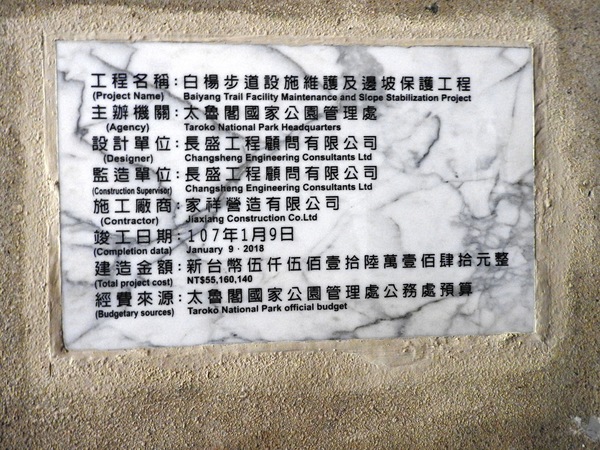 工程名稱:白楊步道設施維護及邊坡保護工程
(Project Name) Baiyang Trail Facility Maintenance and Slope Stabilization Project
主辦機關:太魯閣國家公園管理處
(Agency) Taroko National Park Headquarters
設計單位:長盛工程顧問有限公司
(Designer) Changsheng Engineering Consultants Ltd
監造單位:長盛工程顧問有限公司
(Construction Supervisor) Changsheng Engineering Consultants Ltd
施工廠商:家祥營造有限公司
(Contractor) Jiaxiang Construction Co.Ltd
竣工日期:107年1月9日
(Completion data) January 9 · 2018
建造金額:新台幣伍仟伍佰壹拾陸萬壹佰肆拾元整
(Total project cost) NT$55,160,140
經費來源:太魯閣國家公園管理處公務處預算
(Budgetary sources) Taroko National Park official budget